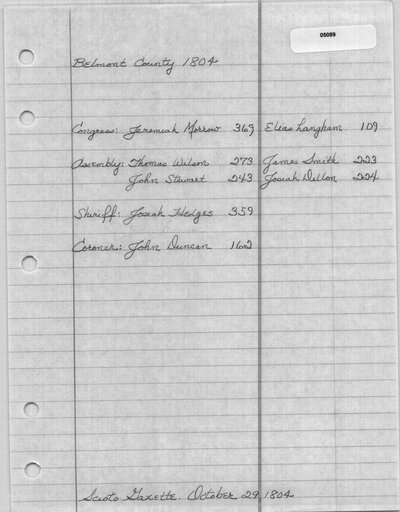 05089
Belmont County 1804
Congress: Jeremiah Morrow 369 Elias Langham 109
Assembly: Thomas Wilson 273 James Smith 223
John Stewart 243 Josiah Dillon 224
Sheriff: Josiah Hedges 359
Coroner: John Duncan 162
Scioto Gazette. October 29, 1804